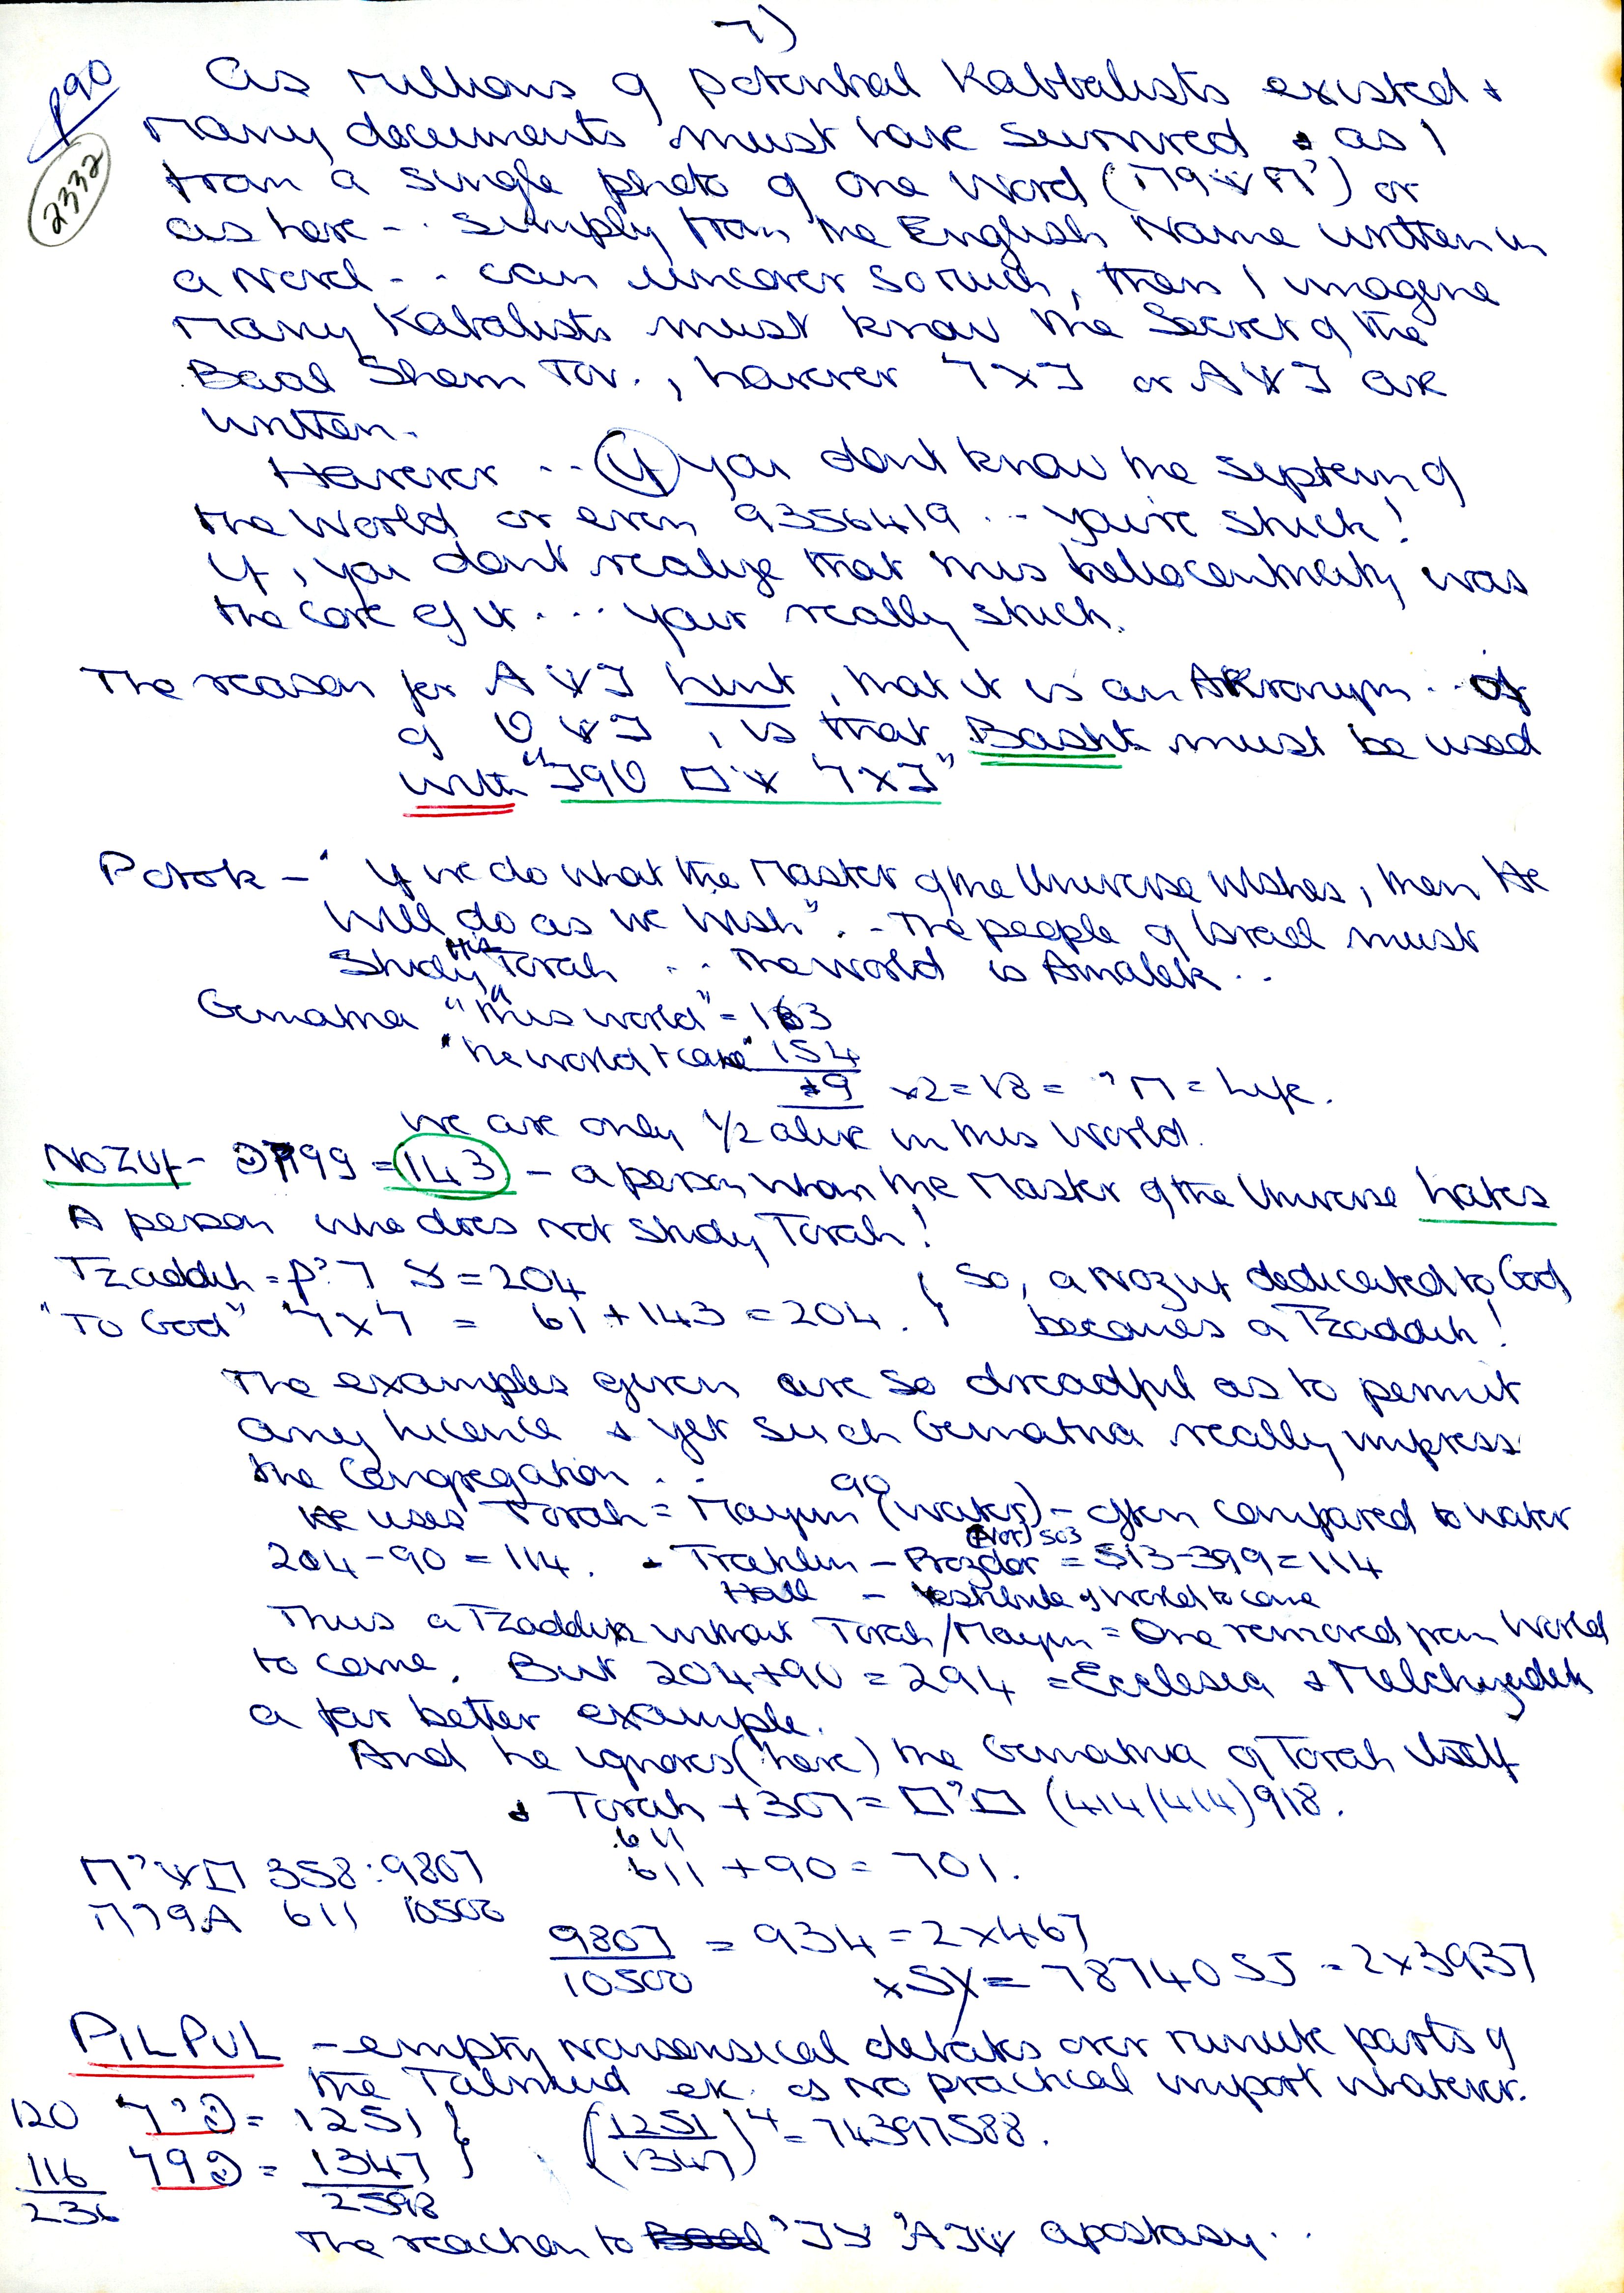 7)
p90
2332
As millions of potential Kabbalists existed +
Many documents must have survived + as I
from a single photo of one word ( ) or
as here - . simply from the English Name written in
a Novel - . can uncover so much, then I imagine
Many Kabalists must know the Secret of the
Baal Shem Tov., however or are
written.
However .. (if) you dont know the septern of
the World or even 9356419 ... you're stuck!
If, you dont realize that this heliocentricity was
the core of it ... your really stuck.
The reason for hint, that it is an AKronym .. of
of , is that, Basht must be used
with " "
Potok - "If we do what the Master of the Universe wishes, then He
will do as we wish". - The people of Israel must
Study His Torah .. The world is Amalek ..
Gematria "This world" = 163
"the world t come" 154
+9 x2 = 18 = = Life.
We are only 1/2 alive in this World.
NOZUf - = 143 - a person whom the Master of the Universe hates
A person who does not study Torah!
Tzaddik = = 204 } So, a Nozuf dedicated to God
"To God" = 61 + 143 = 204. } becomes a Tzaddik!
The examples given are so dreadful as to permit
any licence + yet such Gematria really impress
the Congregation ...
90
He uses Torah = Mayim (Water) - often compared to water
503
204 - 90 = 114. - - Prozdor = 513 - 399 = 114
Hall - Vestibule of World to come
Thus a Tzaddik without Torah/Mayim = One removed from World
to come. But 204 + 90 = 294 = Ecclesia + Melchizedek
a far better example.
And he ignores (here) the Gematria of Torah itself
+ Torah + 307 = (414/414) 918.
611
358 : 9807 611 + 90 = 701.
611 10500
9807/10500 = 934 = 2 x 467
= 7874055 = 2 x 3937
PILPUL - empty nonsensical debates over minute parts of
the Talmud etc. of no practical import whatever.
120 = 1251 } (1251/1347)^4 = 74397588.
116 = 1347 }
236 2598
The reaction to apostasy ..